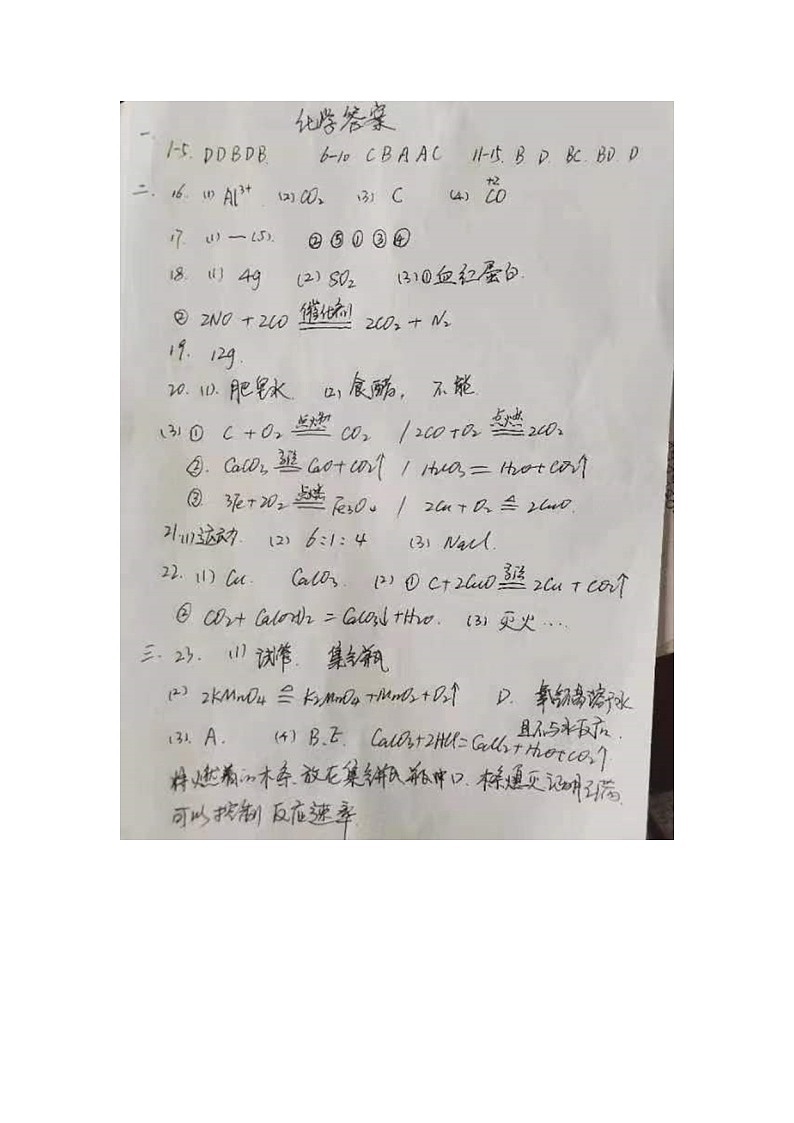 化学答案
一. 1-5. DDBDB. 6-10 CBAAC 11-15. B D. BC. BD. D
二. 16. (1) Al³⁺ (2) CO₂ (3) C (4) C⁺²O
17. (1)—(5). ②⑤①③④
18. (1) 4g (2) SO₂ (3)①血红蛋白.
② 2NO + 2CO 催化剂═ 2CO₂ + N₂
19. 12g.
20. (1). 肥皂水 (2) 食醋, 不能.
(3) ① C + O₂ 点燃═ CO₂ / 2CO + O₂ 点燃═ 2CO₂
②. CaCO₃ 高温═ CaO + CO₂↑ / H₂CO₃ = H₂O + CO₂↑
③ 3Fe + 2O₂ 点燃═ Fe₃O₄ / 2Cu + O₂ △═ 2CuO.
21.(1)运动. (2) 6:1:4 (3) NaCl.
22. (1) Cu. CaCO₃. (2) ① C + 2CuO 高温═ 2Cu + CO₂↑
② CO₂ + Ca(OH)₂ = CaCO₃↓ + H₂O. (3) 灭火....
三. 23. (1) 试管. 集气瓶
(2) 2KMnO₄ △═ K₂MnO₄ + MnO₂ + O₂↑ D. 氧气不易溶于水
且不与水反应.
(3). A. (4) B.E. CaCO₃ + 2HCl = CaCl₂ + H₂O + CO₂↑
将燃着的木条. 放在集气瓶瓶口. 木条熄灭证明已满.
可以控制反应速率.